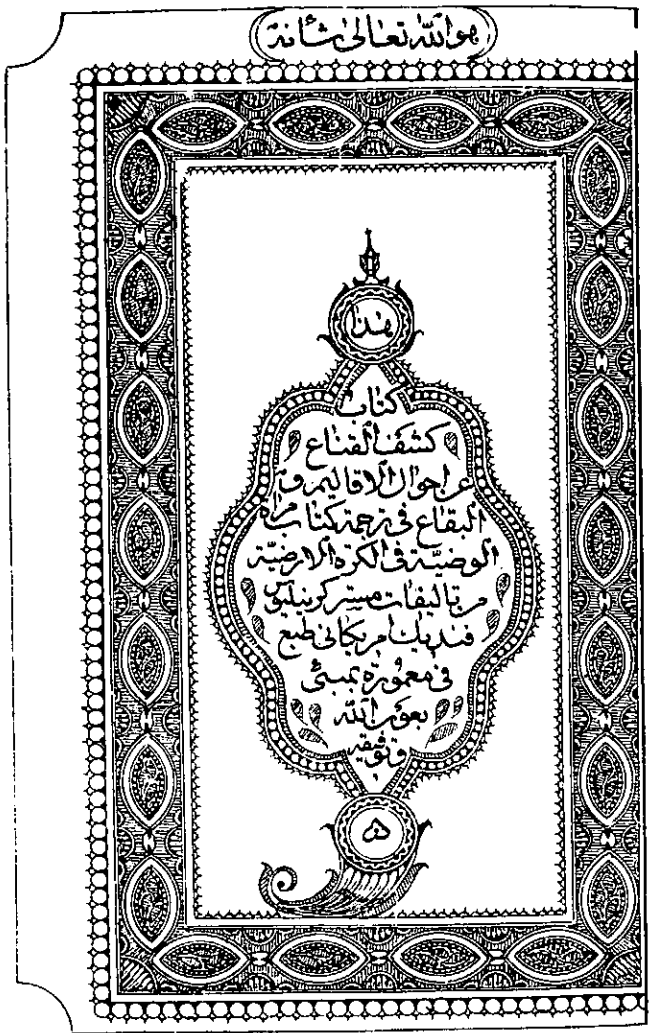 هو الله تعالى شأنه
هذا
كتاب
كشف القناع
عن احوال الاقاليم و
البقاع فى ترجمة كتاب مراة
الوضيّة فى الكرة الارضيّة
من تاليفات مستر كرنيليوس
فنديك امريكانى طبع
فى معمورة بمبئى
بعون الله
وتوفيقه